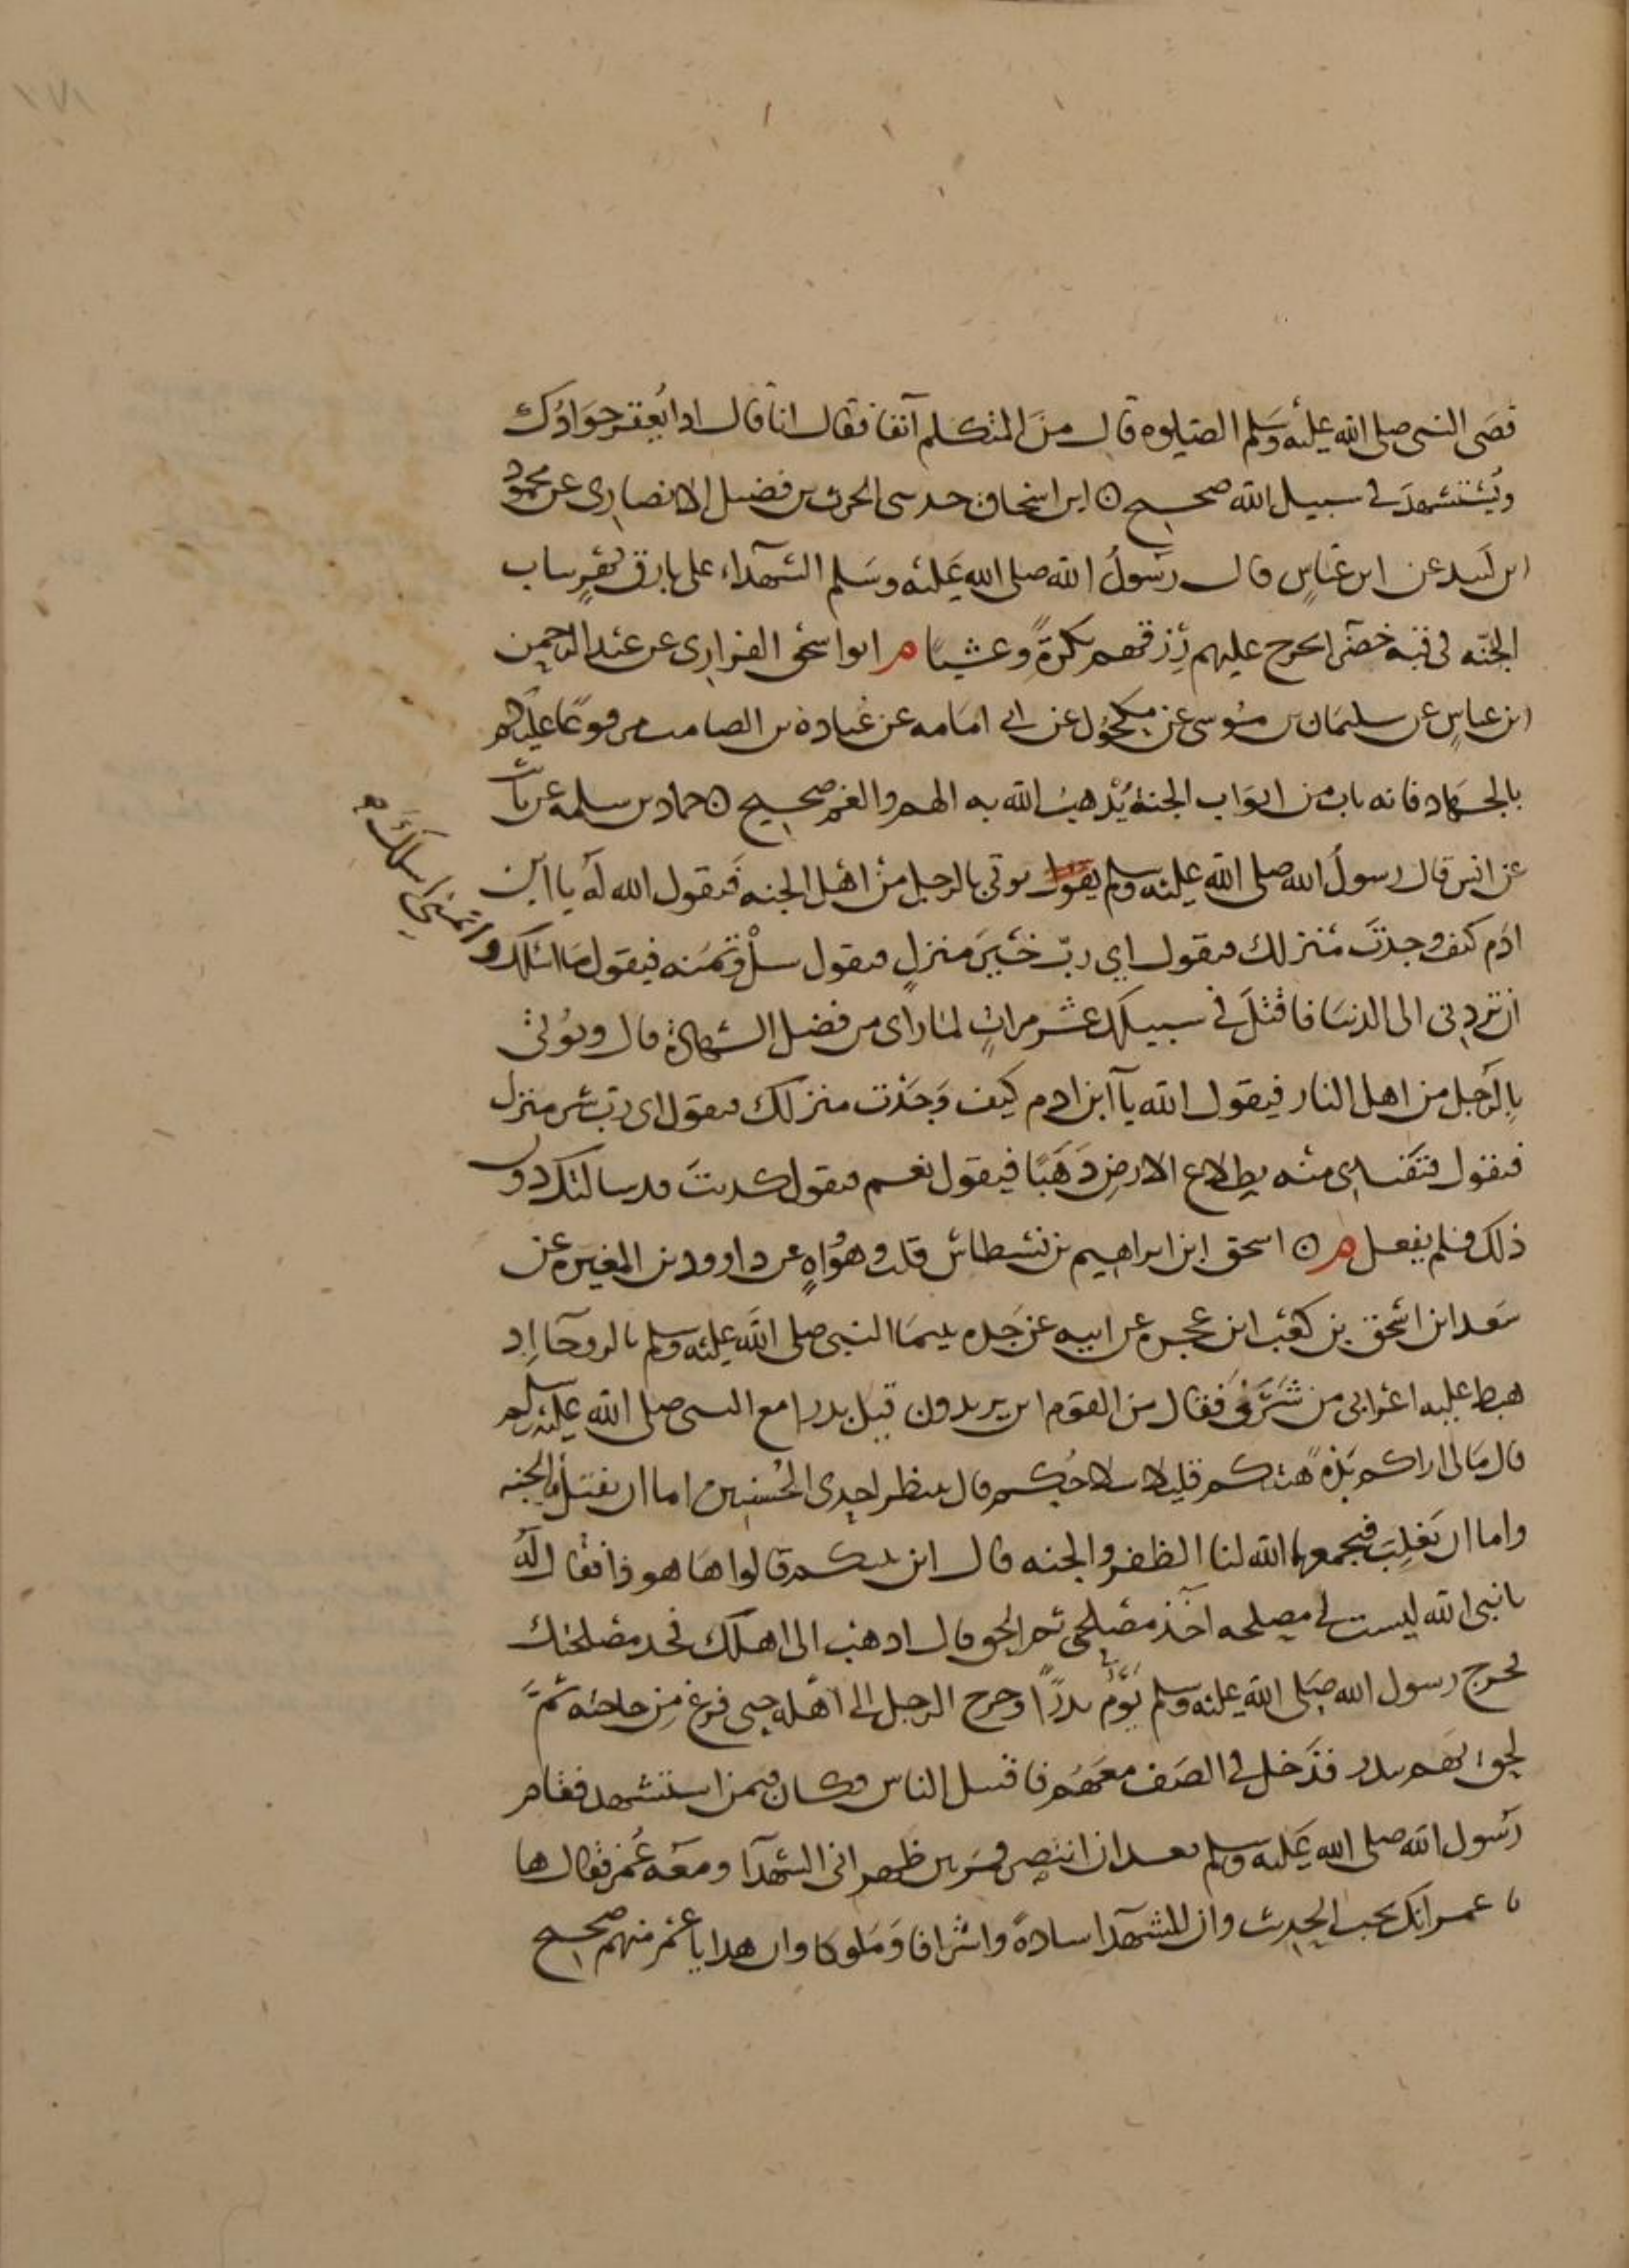 قضى النبي صلى الله عليه وسلم الصلوه قال من المتكلم آنفا فقال انا قال اذا يُعقر جَوَادُك
ويُستشهدَ في سبيل الله صحيح ابن اسحاق حدثني الحرث بن فضيل الانصاري عن محمود
ابن لَبيد عن ابن عباسٍ قال رسولُ الله صلى الله عليه وسلم الشهداء على بارق نهرٍ بباب
الجنّه في قبه خضرآ يخرج عليهم رِزقهم بكرةً وعشيا م ابو اسحق الفزاري عن عبد الرحمن
ابن عباسٍ عن سليمان بن موسى عن مكحول عن ابي امامه عن عبادة بن الصامت مرفوعًا عليكم
بالجهاد فانه باب من ابواب الجنة يُذهبُ الله به الهم والغم صحيح حماد بن سلمه عن ثابت
عن انس قال رسولُ الله صلى الله عليه وسلم يقول يوتى بالرجل من اهل الجنه فيقول الله لهُ يا ابن
ادَم كيف وجدتَ منزلك فيقول اي ربّ خيرَ منزلٍ فيقول سلْ وتمنه فيقول ما اسلك واتمنى
ان تردني الى الدنيا فاقتلَ في سبيلك عشر مراتٍ لما راى من فضل الشهادة قال ويُوتى
بالرّجل من اهل النار فيقول الله يا ابن ادم كيف وَجَدْت منزلك فيقول اي رب شر منزل
فيقول فتفتدي منه بطلاع الارضِ ذَهَبًا فيقول نعم فيقول كذبتَ قد سالتك دون
ذلك فلم تفعل م اسحق ابن ابراهيم بن نسطاس قلت وهو واهٍ عن داوود بن المغيره عن
سَعد ابن اسحق بن كعب ابن عجره عن ابيه عن جده بينما النبي صلى الله عليه وسلم بالروحآ اِذ
هبط عليه اعرابي من شَرَفٍ فقال من القوم اين يريدون قيل بدرا مع النبي صلى الله عليه وسلم
قال مَالي اراكم بَذةً هيئتكم قليلا سلاحُكم قال ننتظر احدى الحُسنيين اما ان نقتل فالجنه
واما ان نَغلِبَ فيجمعهما الله لنا الظفر والجنه قال اين نبيكم قالوا هَا هو ذا فقال لهُ
يا نبي الله ليست لي مصلحه آخذ مصلحي ثم الحق قال اذهب الى اهلك فخذ مصلحتك
فخرج رسول الله صلى الله عليه وسلم يوم بدرًا وخرج الرجل الى اهله حتى فرغ مِن حاجته ثمّ
لحق بهم ببدر فدَخل في الصَف معهم فاقتتل الناس وكان فيمن استشهد فقام
رسول الله صلى الله عليه وسلم بعد ان انتصر فمر بين ظهراني الشهدآ ومعَه عُمر فقال ها
يا عمر انك تحب الحديث وان للشهدآ سادةً واشرافا وَملوكا وان هذا يا عمر منهم صحيح